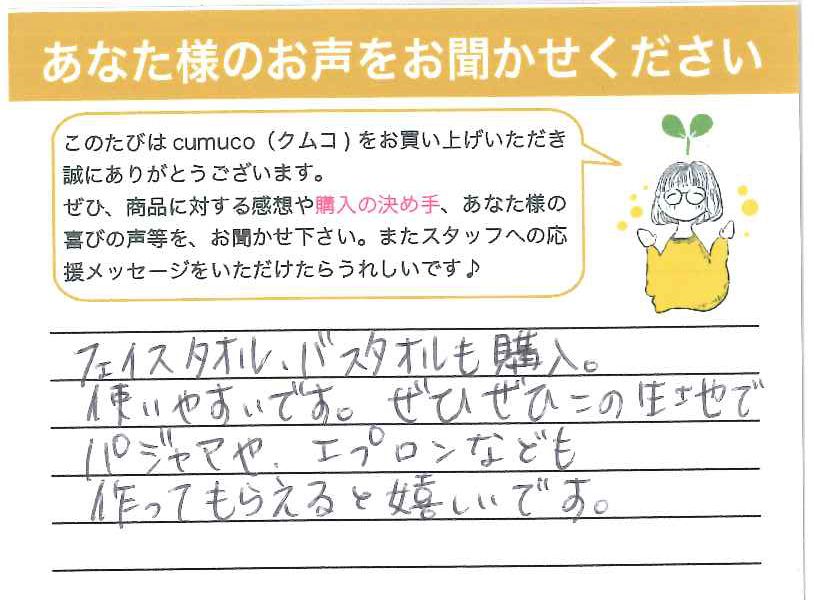 あなた様のお声をお聞かせください
このたびは cumuco（クムコ）をお買い上げいただき
誠にありがとうございます。
ぜひ、商品に対する感想や購入の決め手、あなた様の
喜びの声等を、お聞かせ下さい。またスタッフへの応
援メッセージをいただけたらうれしいです♪
フェイスタオル、バスタオルも購入。
使いやすいです。ぜひぜひこの生地で
パジャマや、エプロンなども
作ってもらえると嬉しいです。